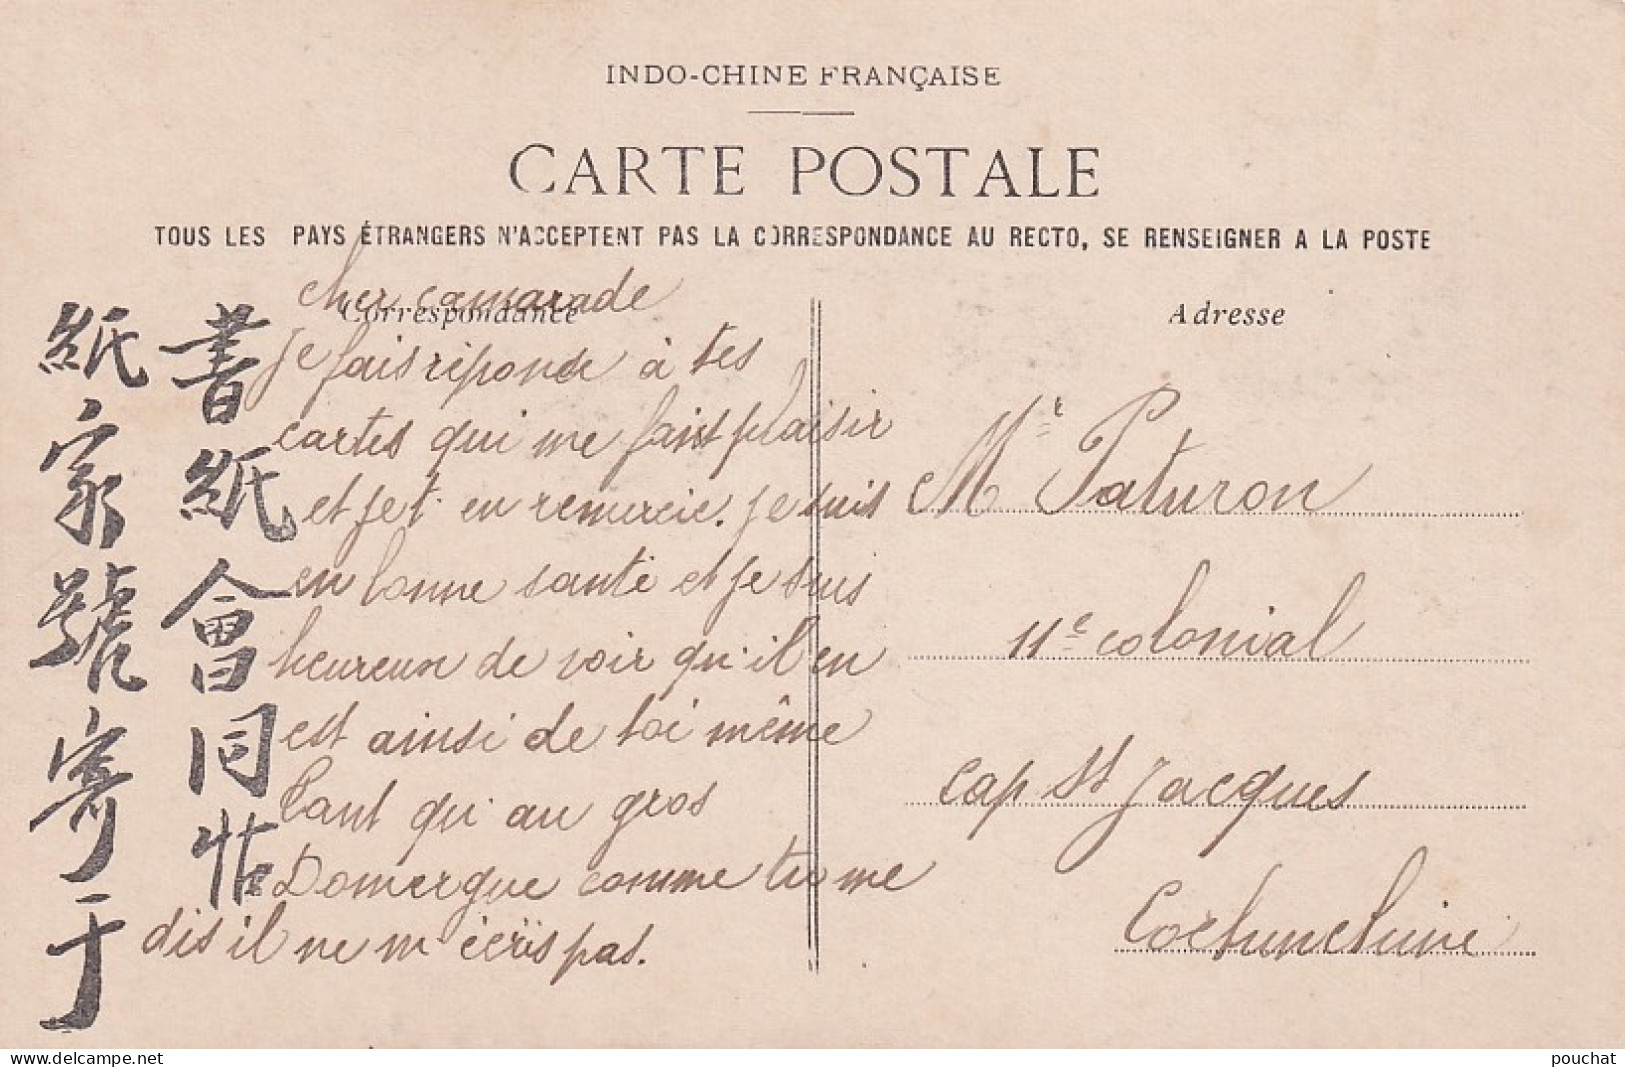 INDO-CHINE FRANÇAISE
CARTE POSTALE
TOUS LES PAYS ÉTRANGERS N'ACCEPTENT PAS LA CORRESPONDANCE AU RECTO, SE RENSEIGNER A LA POSTE
Correspondance
cher camarade
je fais réponse à tes
cartes qui me faist plaisir
et je t'en remercie. je suis
en bonne santé et je suis
heureux de voir qu'il en
est ainsi de toi même
Tant qu'au gros
Domergue comme tu me
dis il ne m'écris pas.
書紙會同帖
紙家號寄于
Adresse
Mr Paturon
11e colonial
cap St Jacques
Cochinchine
www.delcampe.net
pouchat